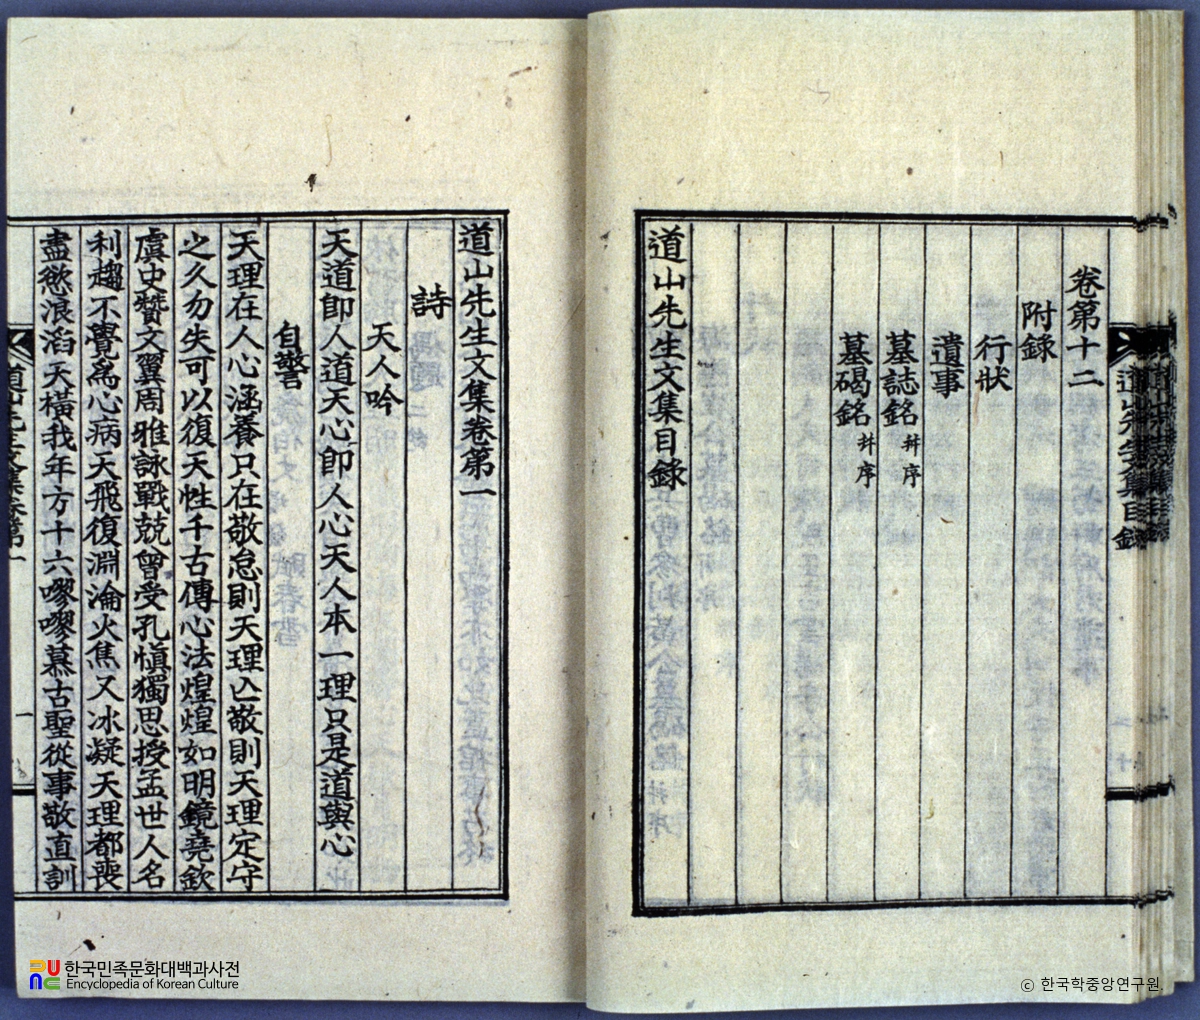 卷第十二
附錄
行狀
遺事
墓誌銘 幷序
墓碣銘 幷序
道山先生文集目錄
道山先生文集目錄
道山先生文集卷第一
詩
天人吟
天道卽人道天心卽人心天人本一理只是道與心
自警
天理在人心涵養只在敬怠則天理亡敬則天理定守
之久勿失可以復天性千古傳心法煌煌如明鏡堯欽
虞史贊文翼周雅詠戰兢曾受孔愼獨思授孟世人名
利趨不覺爲心病天飛復淵淪火焦又冰凝天理都喪
盡慾浪滔天橫我年方十六嘐嘐慕古聖從事敬直訓
道山先生文集卷第一
一
한국민족문화대백과사전
Encyclopedia of Korean Culture
ⓒ 한국학중앙연구원